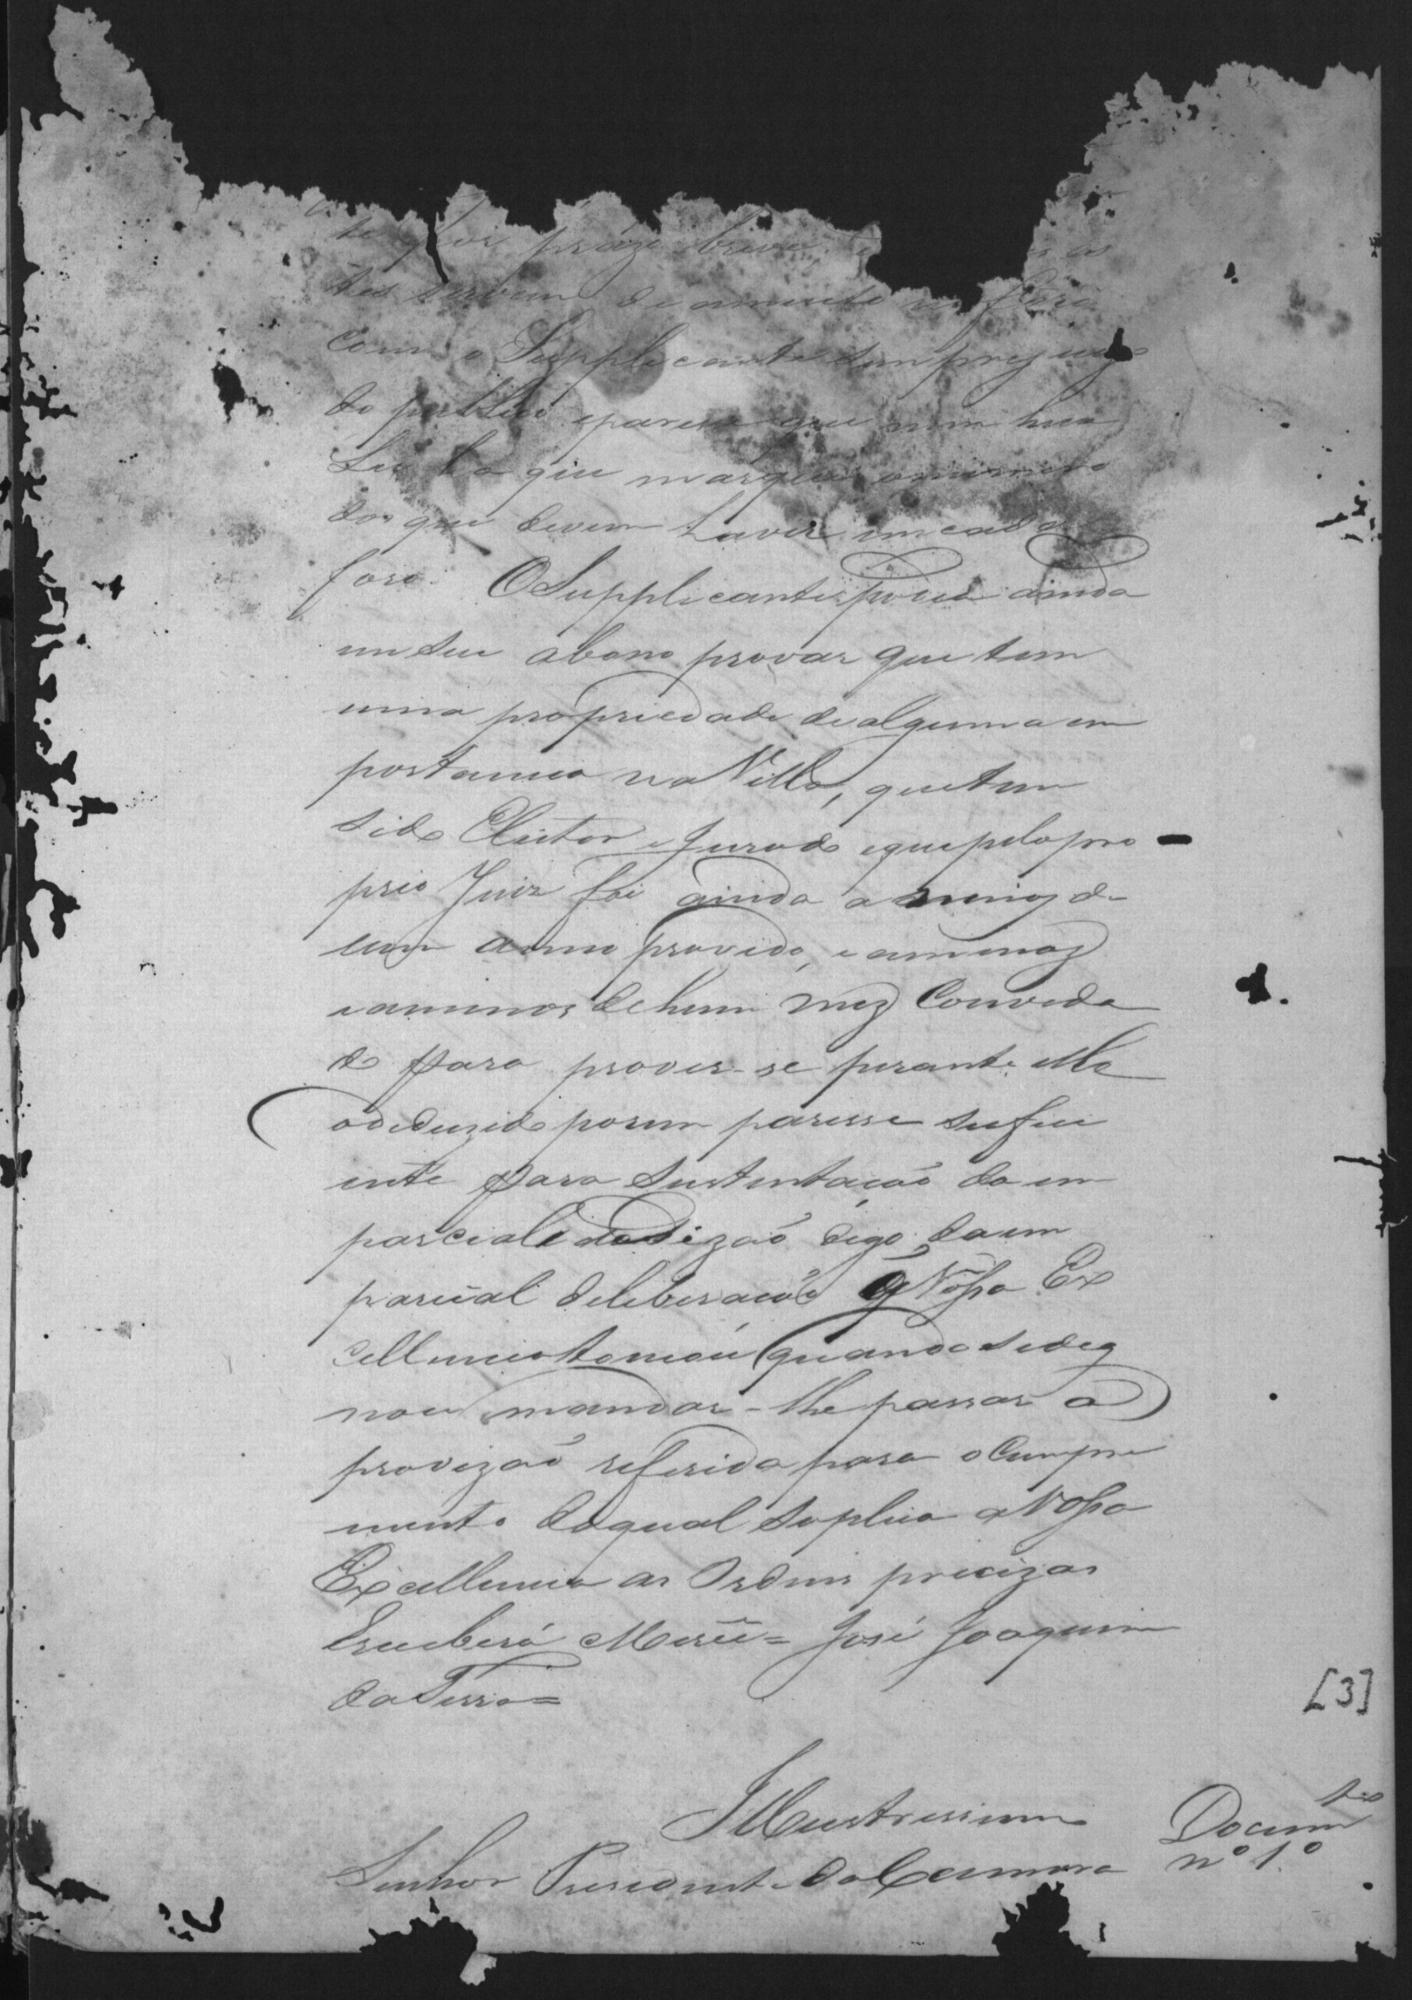 te por prazo breve
tes servem
como o Supplicante sem prejuizo
do publico e parese que nem hua
Lei ha que marque o numero
dos que devem haver em cada
foro. O Supplicante podia ainda
em seu abono provar que tem
uma propriedade de alguma em
portancia na Villa, que tem
sido Eleitor e Jurado e que pelo pro
prio Juiz foi ainda a menos de
um anno provido, e a menos
e a menos de hum mez Convida
do para prover-se perante elle
o deduzido porem parese sufici
ente para sustentação da em
parcial digo da em
parcial deliberação q Vossa Ex
cellencia tomou quando se deg
nou mandar-lhe passar a
provizão referida para o Cumpri
mento da qual suplica a Vossa
Excellencia as Ordens precizas
E receberá Mercê = José Joaquim
da Terra =
[3]
Illustrissimo
Senhor Presidente da Camara
Documto
nº 1.º